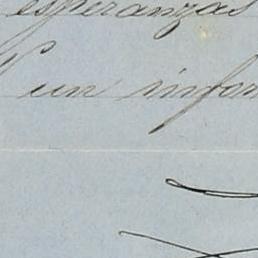 esperanzas
un infor